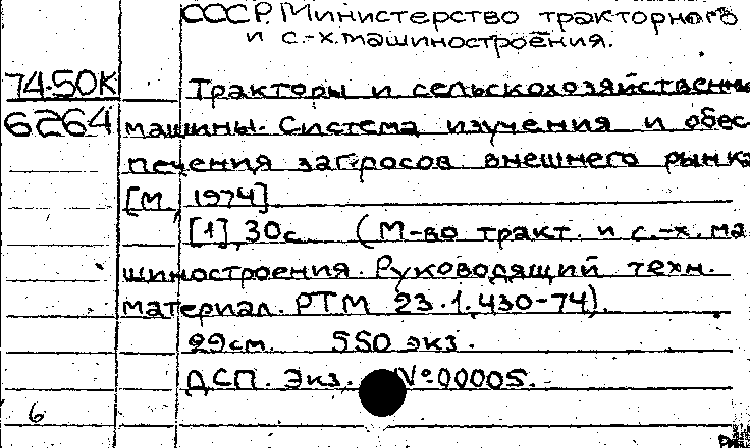 СССР. Министерство тракторного
и с.-х. машиностроения.
74-50К
6264
Тракторы и сельскохозяйственн
машины. Система изучения и обес
печения запросов внешнего рынка
[М., 1974].
[1], 30с. (М-во тракт. и с.-х. ма
шиностроения. Руководящий техн.
материал. РТМ 23.1.430-74).
29см. 550 экз.
ДСП. Экз. №00005.
6